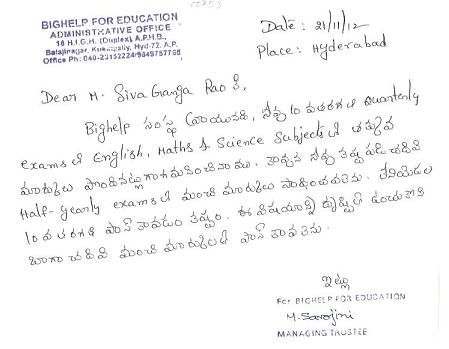 BIGHELP FOR EDUCATION
ADMINISTRATIVE OFFICE
16 H.I.G.H. (Duplex), A.P.H.B.,
Balajinagar, Kukatpally, Hyd-72. A.P.
Office Ph: 040-23152224/9849757766
Date: 21/11/12
Place: Hyderabad
Dear M. Siva Ganga Rao కి,
Bighelp సంస్థ వ్రాయునది, నీవు 10 వతరగతి Quarterly
exams లో English, Maths & Science Subjects లో తక్కువ
మార్కులు పొందినట్లుగా గమనించినాము. కావున నీవు కష్టపడి చదివి
Half-yearly exams లో మంచి మార్కులు సాధించవలెను. లేనియెడల
10 వతరగతి పాస్ కావడం కష్టం. ఈ విషయాన్ని దృష్టిలో ఉంచుకొని
బాగా చదివి మంచి మార్కులతో పాస్ కావలెను.
ఇట్లు
For BIGHELP FOR EDUCATION
M. Sarojini
MANAGING TRUSTEE